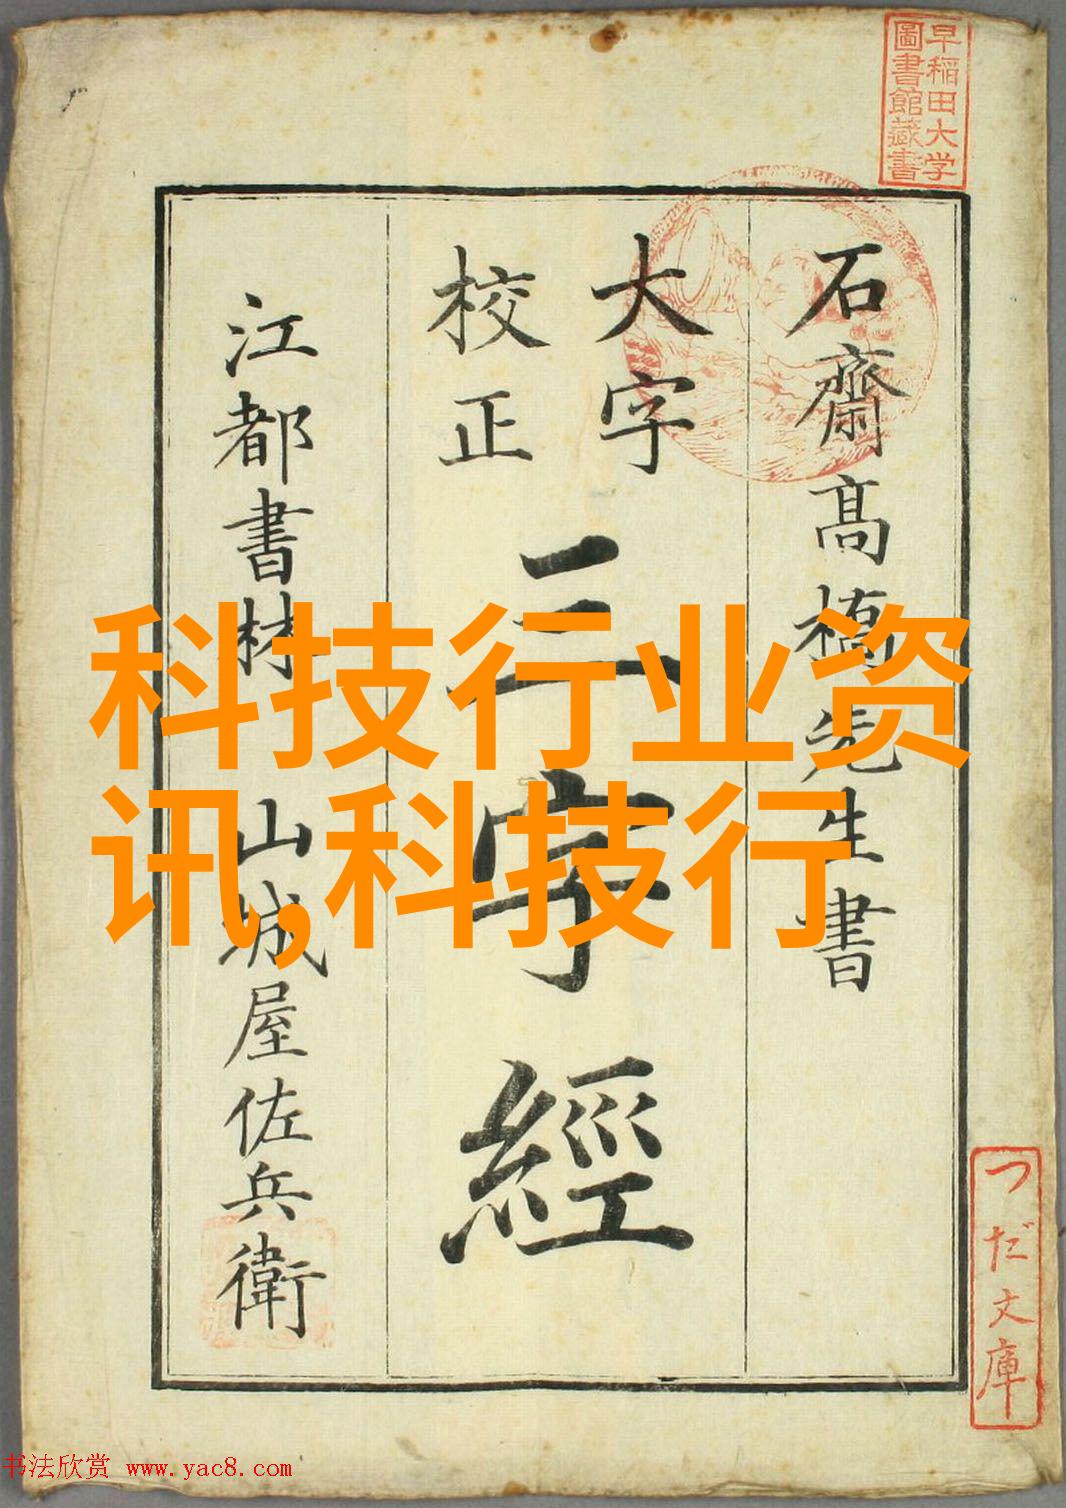 早稲田大学
圖書館藏書
石齋髙橋先生書
大字
校正
三字經
江都書林 山城屋佐兵衛
科技行业资
讯,科技行
つだ文庫
书法欣赏 www.yac8.com